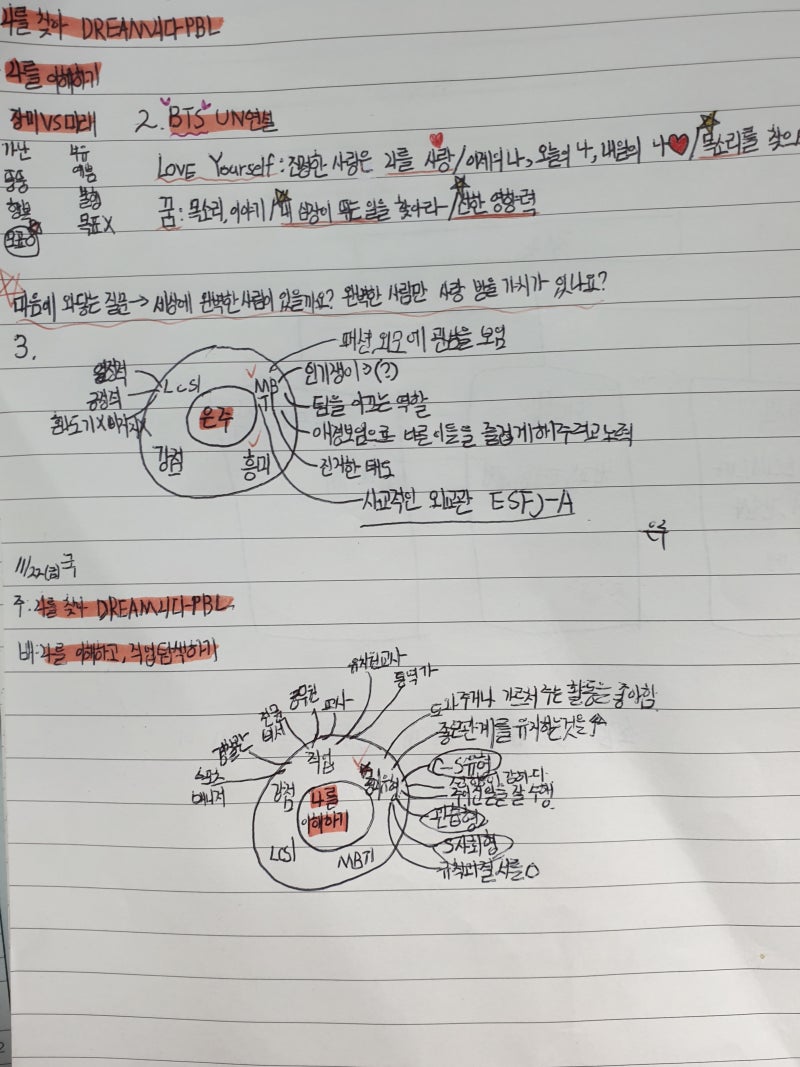 나를 찾아 DREAM니다-PBL
나를 이해하기
장미 VS 미래
2. BTS UN연설
가난
부유
뚱뚱
예쁨
행복
불행
목표O
목표X
LOVE Yourself : 진정한 사랑은 나를 사랑 / 어제의 나, 오늘의 나, 내일의 나 / 목소리를 찾으
꿈 : 목소리, 이야기 / 내 심장이 뛰는 일을 찾아라 / 선한 영향력
마음에 와닿는 질문 → 세상에 완벽한 사람이 있을까요? 완벽한 사람만 사랑 받을 가치가 있나요?
3.
패션 외모에 관심을 보임
인기쟁이 (?)
팀을 이끄는 역할
LCSI
긍정적
MBTI
은주
강점
흥미
진지한 태도
사교적인 외교관 ESFJ-A
은주
11/22(금) 국
주: 나를 찾아 DREAM니다-PBL
배: 나를 이해하고, 직업탐색하기
유치원교사
통역가
공무원
교사
전문비서
경찰관
스포츠 매니저
도와주거나 가르쳐 주는 활동을 좋아함
좋은관계를 유지하는것을
직업
강점
나를 이해하기
LCSI
MBTI
C-S유형
주어진일을 잘 수행
관습형
S사회형